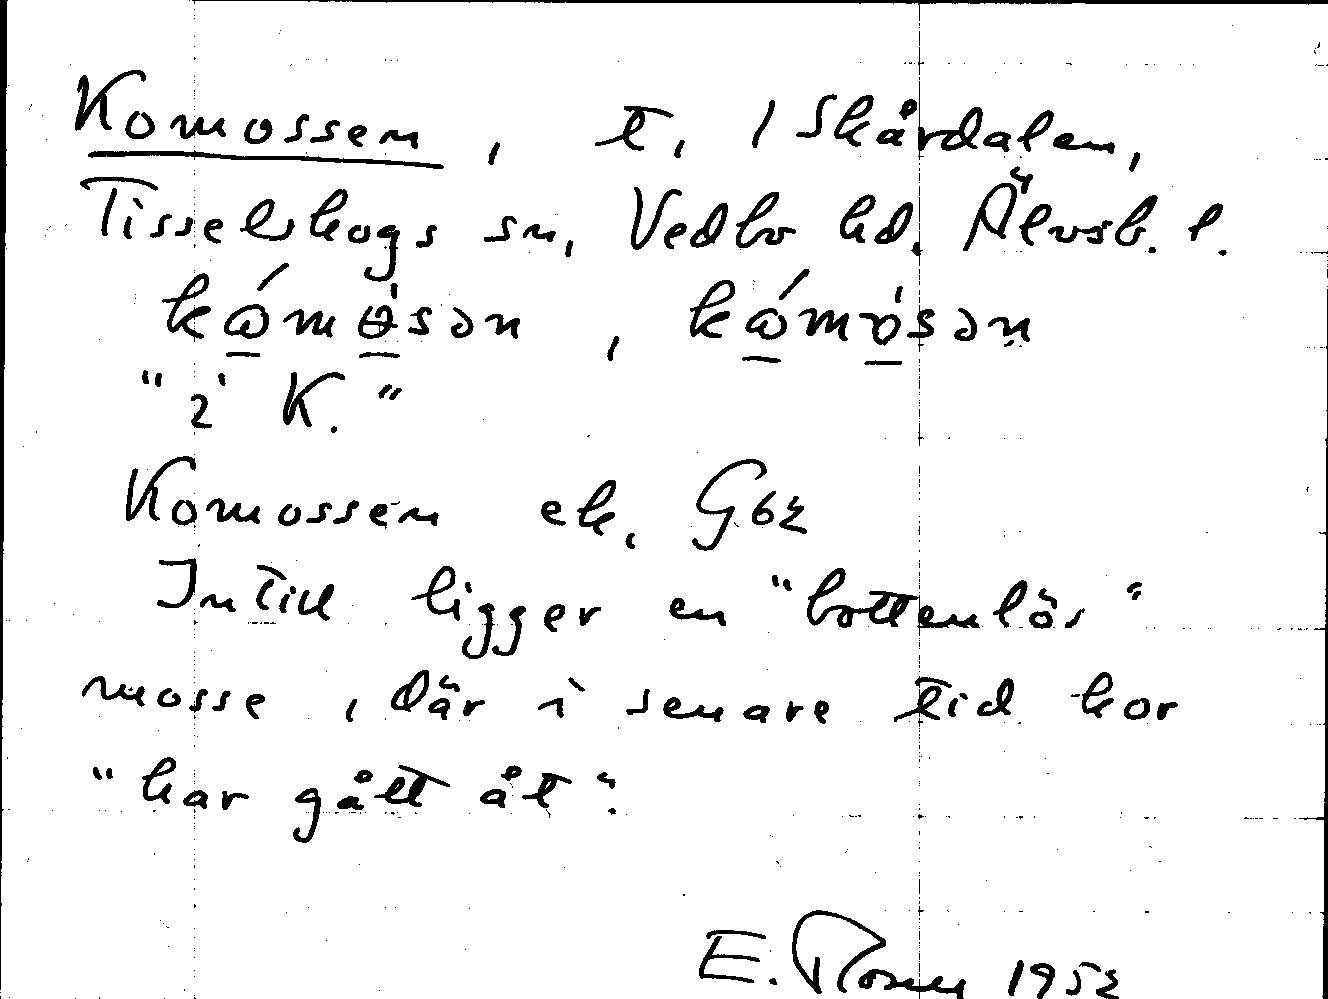 Komossen, t, 1 Skårdalen,
Tisselskogs sn, Vedbo hd. Älvsb. l.
kó̱mò̱sən, kó̱mò̱sən
"2 K."
Komossen ek. G62
Intill ligger en "bottenlös"
mosse, där i senare tid kor
"har gått åt".
E. 1952